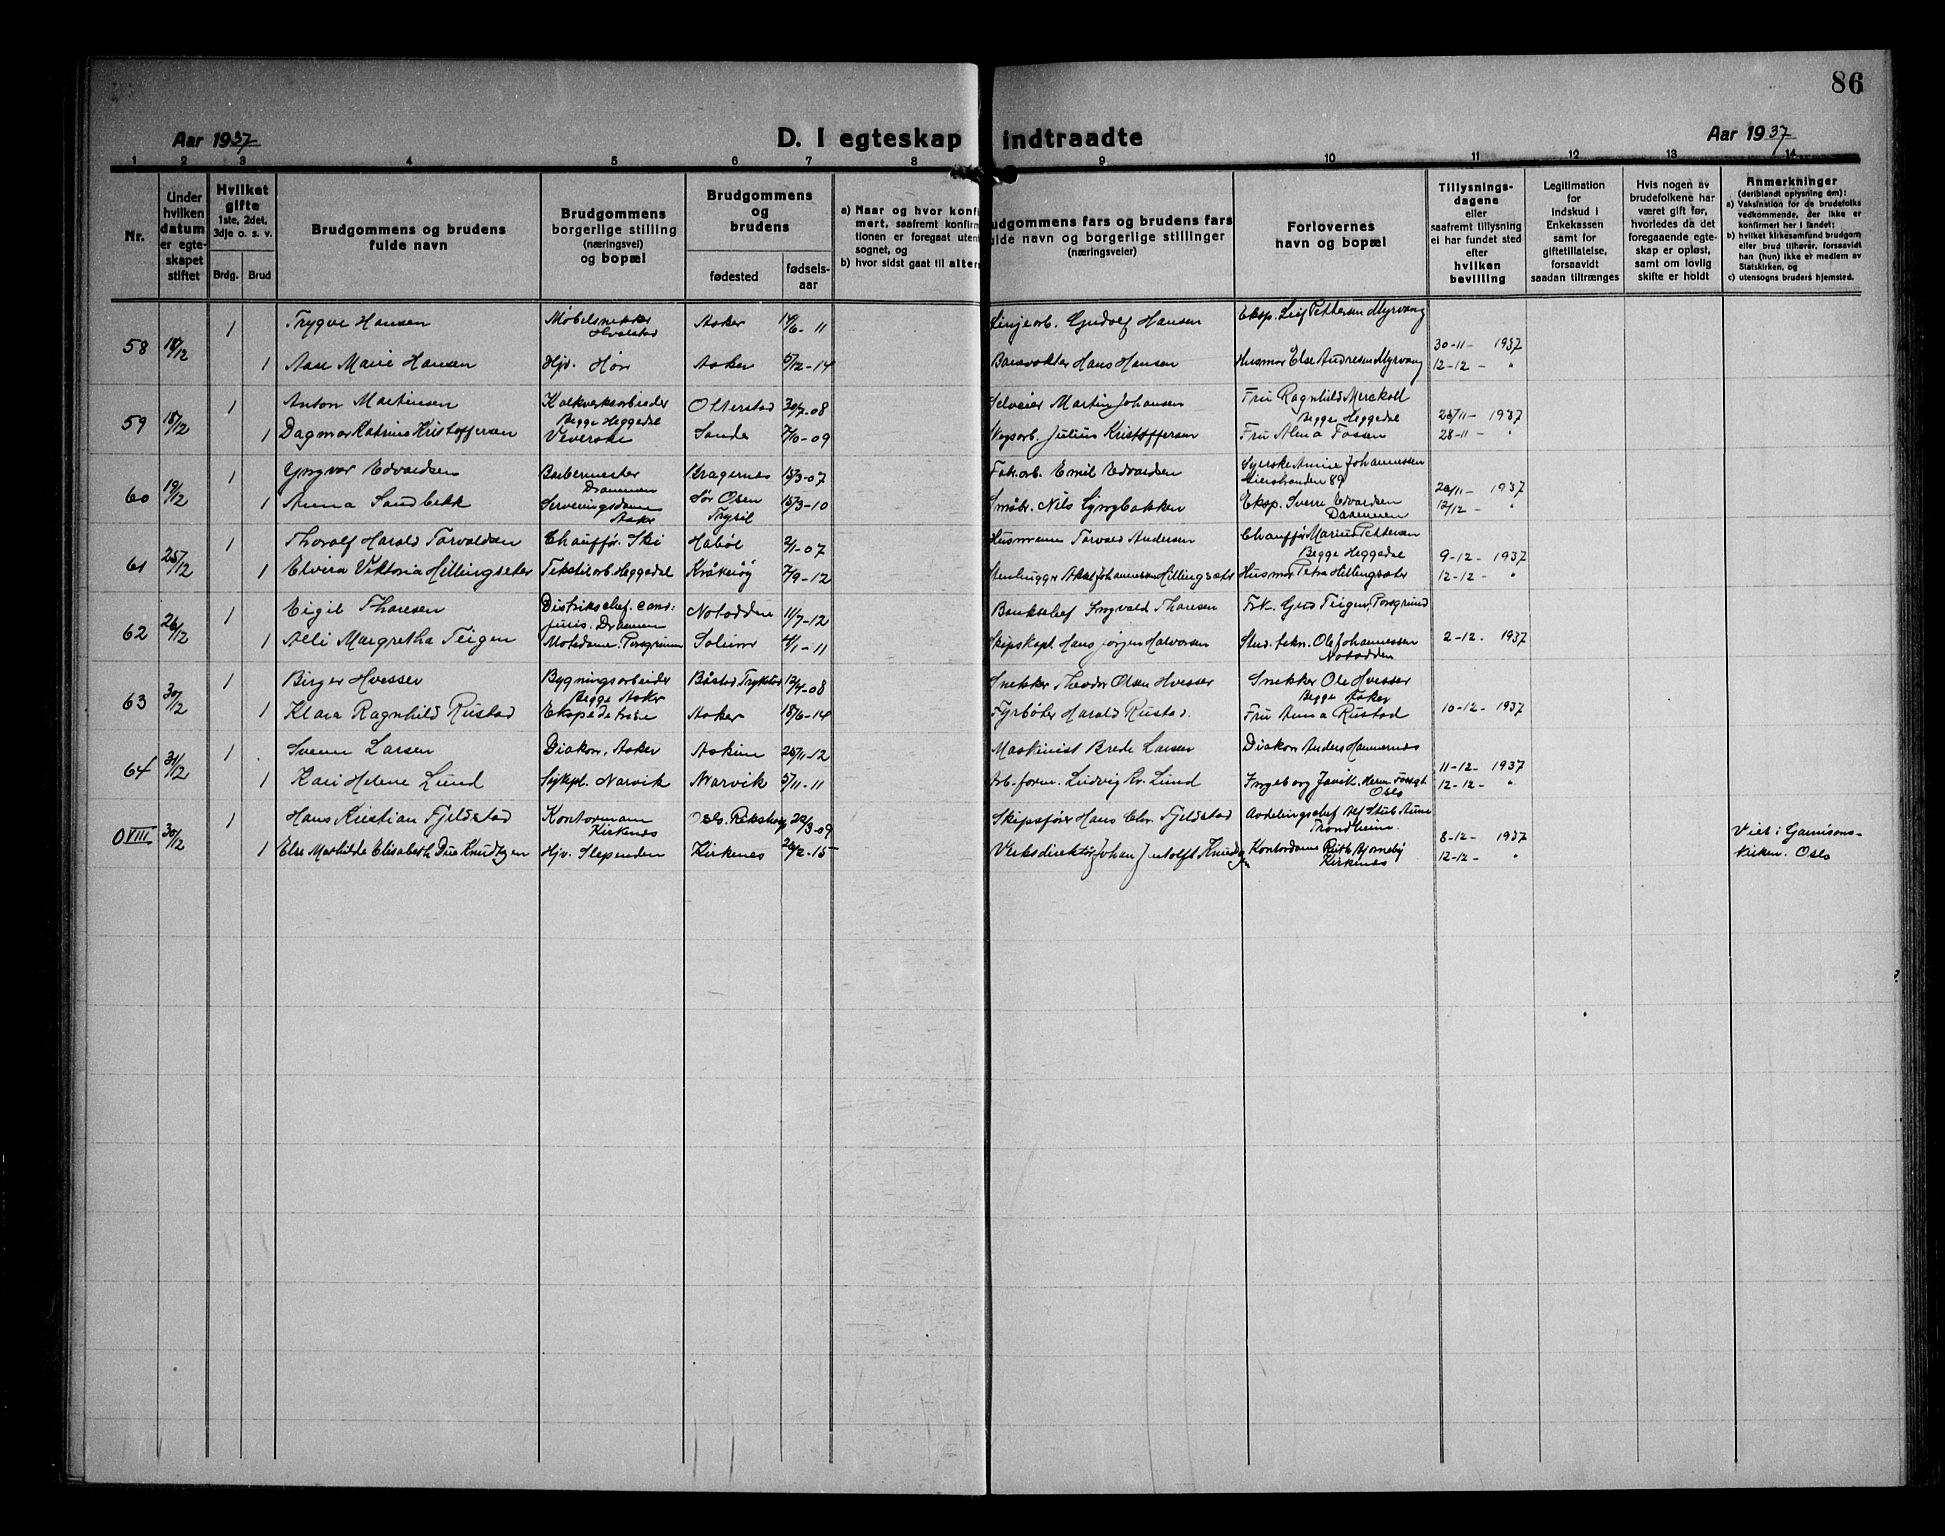 86
Aar 1937
D. I egteskap indtraadte
Aar 1937
1 2 3 4 5 6 7 8 9 10 11 12 13 14
Nr.
Under hvilken datum er egteskapet stiftet
Hvilket gifte
1ste, 2det, 3dje o. s. v.
Brdg. Brud
Brudgommens og brudens fulde navn
Brudgommens borgerlige stilling (næringsvei) og bopæl
Brudgommens og brudens
fødested
fødselsaar
a) Naar og hvor konfi
mert, saafremt konfirm
tionen er foregaat uten
sognet, og
b) hvor sidst gaat til alter
udgommens fars og brudens fars
fulde navn og borgerlige stillinger
(næringsveier)
Forlovernes navn og bopæl
Tillysningsdagene
eller
saafremt tillysning
ei har fundet sted
efter
hvilken
bevilling
Legitimation
for
indskud i
Enkekassen
samt for
giftetillatelse,
forsaavidt
saadan tiltrænges
Hvis nogen av
brudefolkene har
været gift før,
hvorledes da det
foregaaende egteskap er opløst,
samt om lovlig
skifte er holdt
Anmerkninger
(deriblandt oplysning om):
a) Vaksination for de brudefolks
vedkommende, der ikke er
konfirmert her i landet;
b) hvilket kirkesamfund brudgom
eller brud tilhører, forsaavidt
han (hun) ikke er medlem av
Statskirken, og
c) utensogns bruders hjemsted.
58 18/12 1 Trygve Hansen Møbelsnekker Hvalstad Asker 14/6-11 Linjearb. Gudolf Hansen Eksp. Leif Pettersen Myrvang 30-11- 1937
1 Aase Marie Hansen Hjv. Høn Asker 5/12-14 Banevokter Hans Hansen Husmor Else Andresen Myrvang 12-12- "
59 18/12 1 Anton Martinsen Kalkverksarbeider Olterstad 30/7-08 Selveier Martin Johansen Fru Ragnhild Merckoll 25/11- 1937
Begge Heggedal Begge Heggedal
1 Dagmar Katrine Kristoffersen Veverske Sande 7/10-09 Vegarb. Julius Kristoffersen Fru Alma Fossen 28-11- "
60 19/12 1 Yngvar Edvardsen Barbermester Drammen Bragernes 15/3-07 Fabr.arb. Emil Edvardsen Syerske Annie Johannessen 89 1937
1 Anna Sandbekk Serveringsdame Asker Sør Osen Trysil 15/3-10 Småbr. Nils Lyngbakken Eksp. Sverre Edvardsen Drammen 12/12- "
61 25/12 1 Thoralf Harald Torvaldsen Chauffør. Ski Håbøl 2/1-07 Husmann Torvald Andersen Chauffør Marius Pettersen Begge Heggedal 9-12- 1937
1 Elvira Viktoria Hillingseter Tekstilarb Heggedal Kråkerøy 7/9-12 Stenhugger Aksel Johannessen Hillingsæter Husmor Petra Hillingsæter 12-12- "
62 26/12 1 Eigil Thoresen Distrikschef. cand. juris. Drammen Notodden 11/7-12 Banksjef Ingvald Thoresen Frk. Gud Teigen, Porsgrund
1 Alli Margretha Teigen Motedame Porsgrunn Solum 4/1-11 Skipskapt. Hans Jørgen Halvorsen Stud. tekn. Ole Johannessen Notodden 2-12- 1937
63 30/12 1 Birger Hvesser Bygningsarbeider Båstad Trykstad 12/4-08 Snekker Theodor Olsen Hvesser Snekker Ole Hvesser
Begge Asker Begge Asker
1 Klara Ragnhild Rustad Ekspeditrise Asker 18/6-14 Fyrbøter Harald Rustad. Fru Anna Rustad 10-12- 1937
64 31/12 1 Svenn Larsen Diakon, Asker Askim 25/11-12 Maskinist Brede Larsen Diakon Anders Hammernes 11-12- 1937
1 Kari Helene Lund Sykepl. Narvik Narvik 5/11-11 Arb.form. Ludvig Kr. Lund Ingeborg Oslo 12-12- "
OVIII 30/12 1 Hans Kristian Fjeldstad Kontormann Kirkenes Oslo. Rikshosp 22/3-09 Skipsfører Hans Chr. Fjeldstad Avdelingschef Alf Stub Aune Trondheim. 8-12- 1937 Viet i Garnisons-
1 Else Mathilde Elisabeth Due Knudtzen Hjv. Slependen Kirkenes 26/2-15 Verksdirektør Johan Knudtzen Kontordame Ruth Bjørneby Kirkenes 12-12- " kirken. Oslo